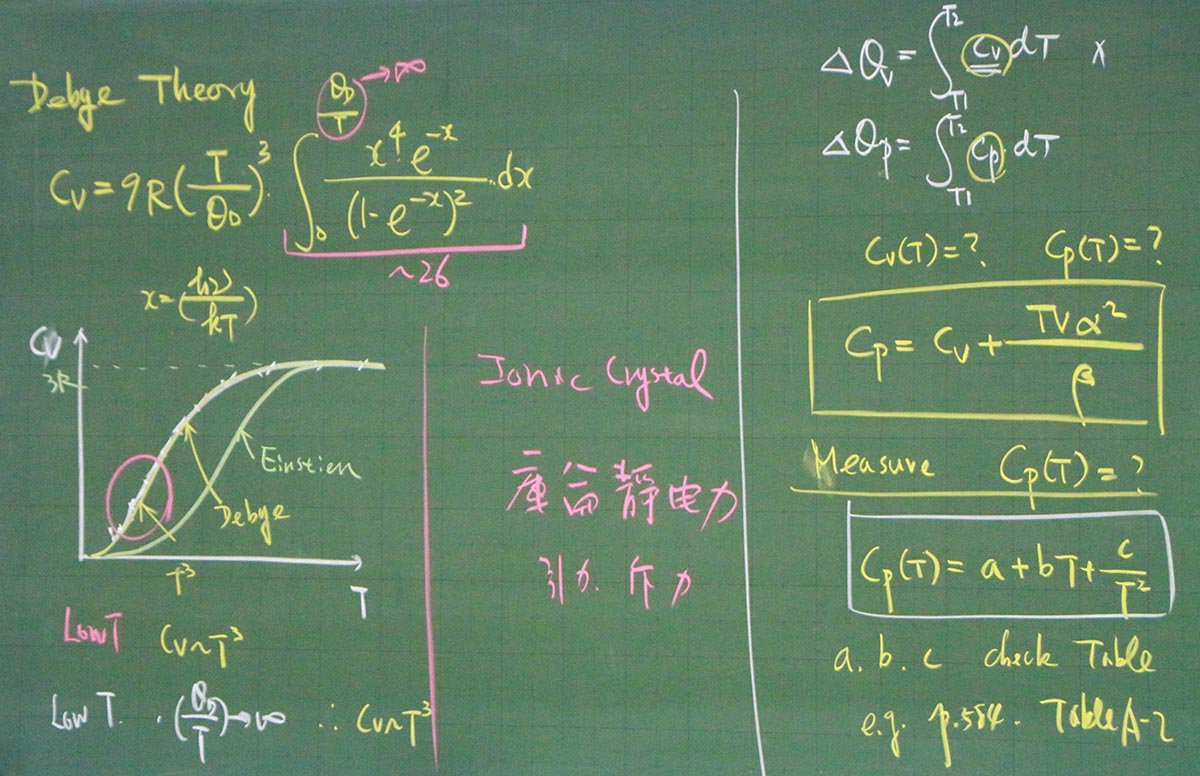 Debye Theory
Cv = 9R(T/θD)³ · ∫₀^(θD/T →∞) x⁴e^(-x)/(1-e^(-x))² · dx
~26
x = (hν/kT)
Cv
3R
Einstien
Debye
T³
T
Low T Cv~T³
Low T. · (θD/T)→∞ ∴ Cv~T³
Ionic Crystal
庫侖靜电力
引力. 斥力
ΔQv = ∫_T1^T2 Cv dT x
ΔQp = ∫_T1^T2 Cp dT
Cv(T)=? Cp(T)=?
Cp = Cv + TVα²/β
Measure Cp(T)=?
Cp(T) = a+bT+c/T²
a. b. c check Table
e.g. p.584. Table A-2